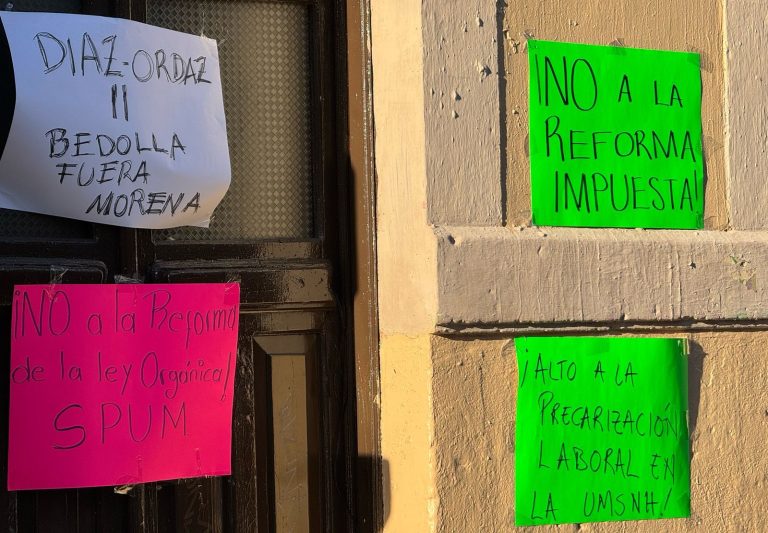 DIAZ-ORDAZ
II
BEDOLLA
FUERA
MORENA
¡NO a la Reforma
de la ley Orgánica!
SPUM
¡NO A LA
REFORMA
IMPUESTA!
¡ALTO A LA
PRECARIZACIÓN
LABORAL EN
LA UMSNH!